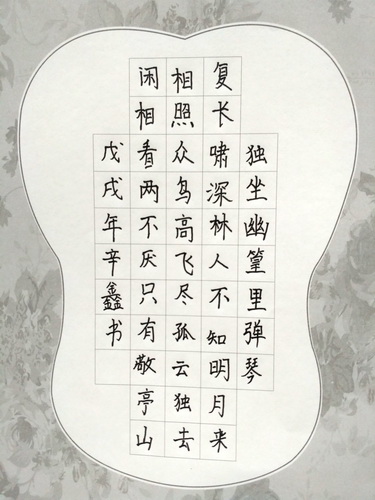 独坐幽篁里弹琴
复长啸深林人不知明月来
相照众鸟高飞尽孤云独去
闲相看两不厌只有敬亭山
戊戌年辛鑫书